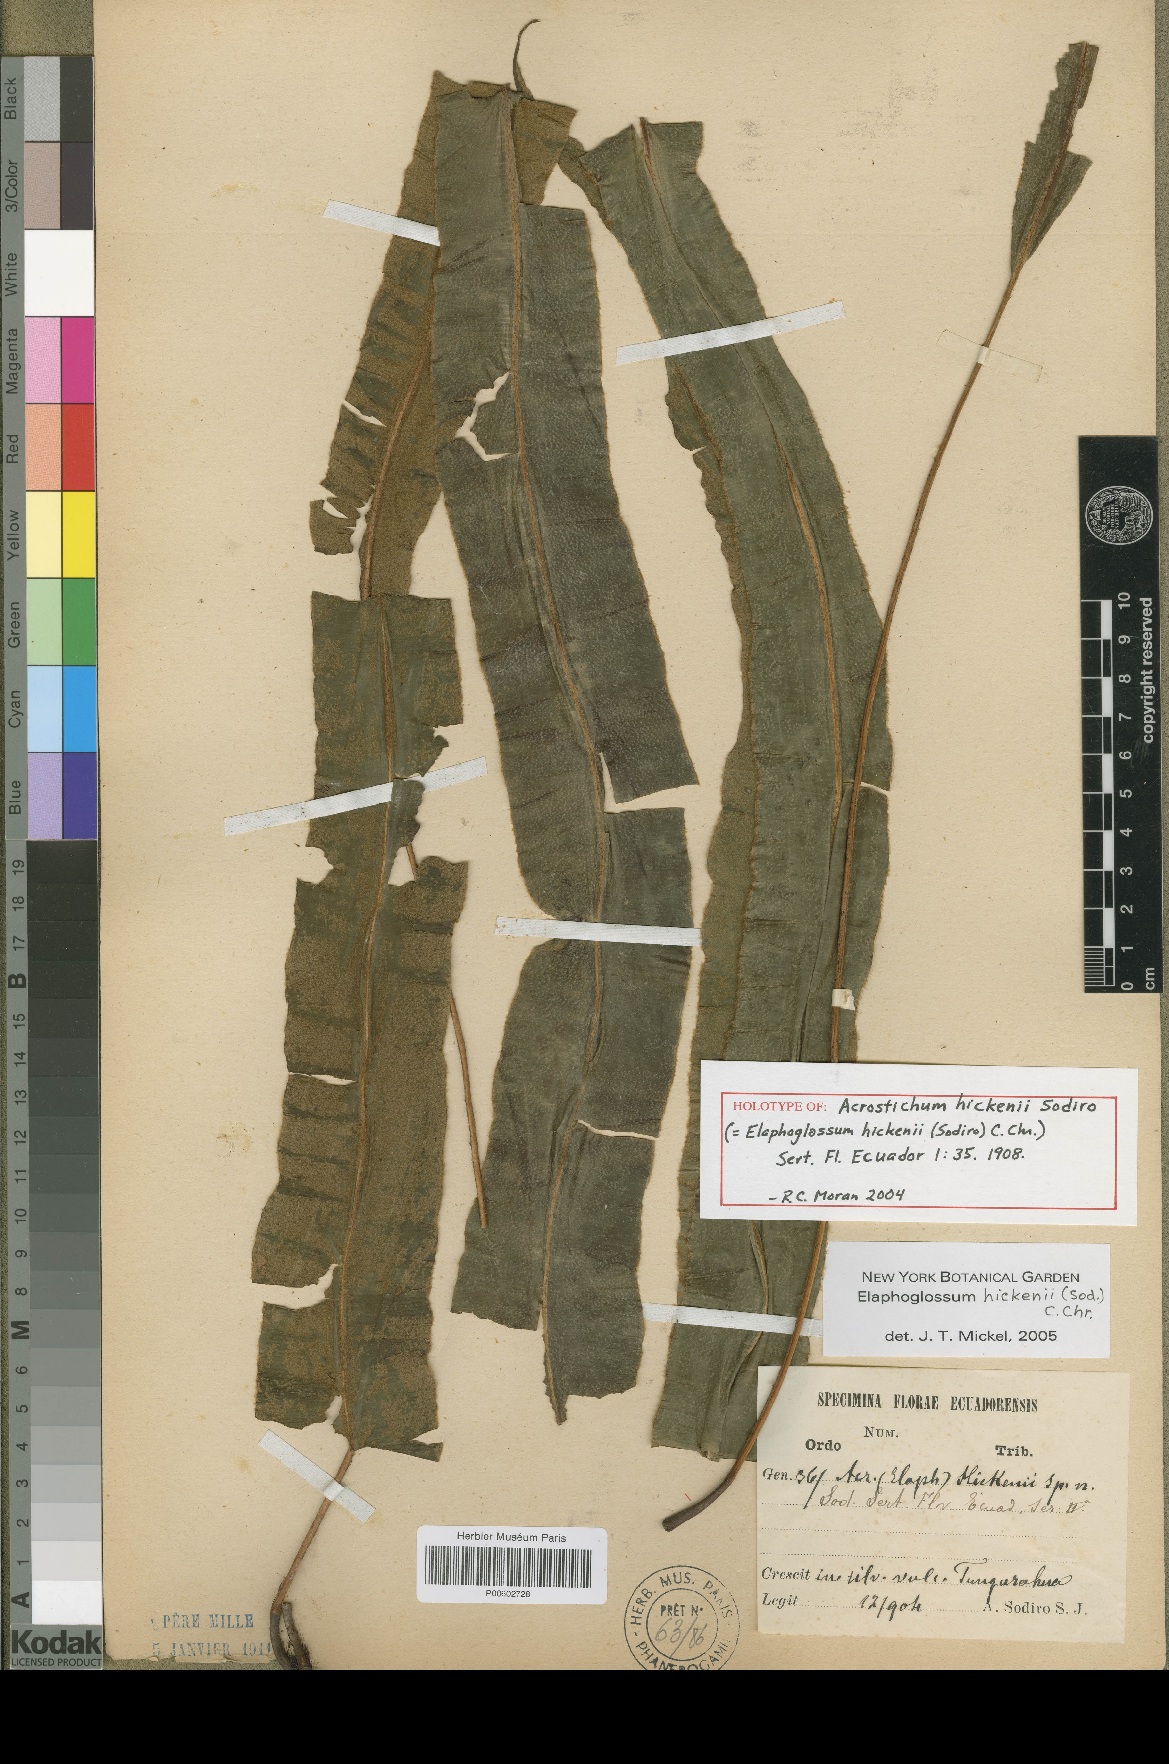 Black
3/Color
White
Magenta
Red
Yellow
Green
Cyan
Blue
19
18
17
B
16
15
14
13
12
11
10
9
8
M
7
6
5
4
3
2
1
A
Kodak
LICENSED PRODUCT
10
9
8
7
6
5
4
3
2
1
0
cm
copyright reserved
HOLOTYPE OF: Acrostichum hickenii Sodiro
(= Elaphoglossum hickenii (Sodiro) C. Chr.)
Sert. Fl. Ecuador 1: 35. 1908.
- R.C. Moran 2004
NEW YORK BOTANICAL GARDEN
Elaphoglossum hickenii (Sod.)
C. Chr.
det. J. T. Mickel, 2005
SPECIMINA FLORAE ECUADORENSIS
NUM.
Ordo Trib.
Gen. 36/ Acr. (Elaph) Hickenii sp. n.
Sod. Sert. Flor. Ecuad. Ser. II
Crescit in silv. vulc. Tungurahua
Legit 12/904 A. Sodiro S. J.
Herbier Muséum Paris
P00602728
HERB. MUS. PARIS
PRÊT No
63/86
PHANEROGAMIE
PÈRE MILLE
5 JANVIER 1911